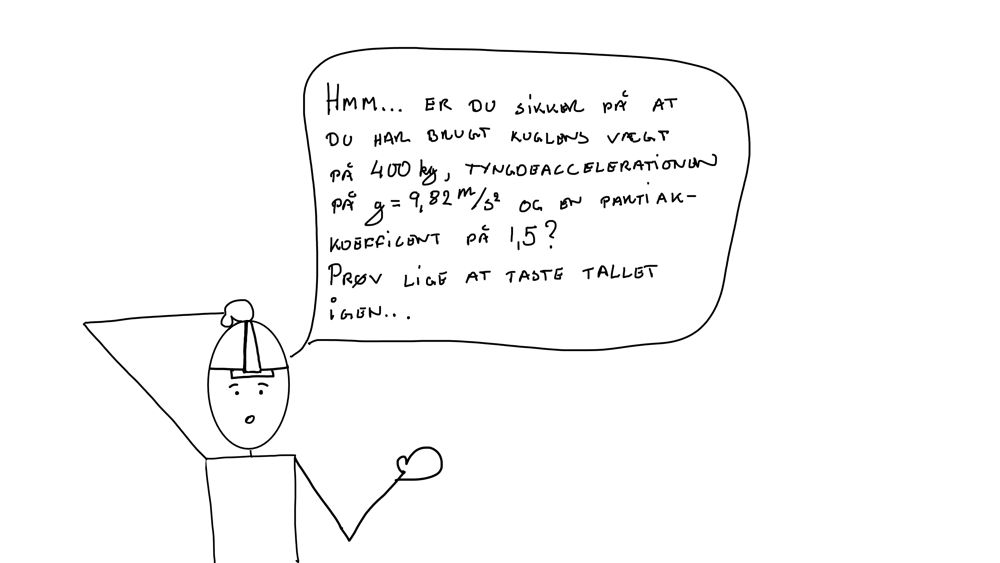 Hmm... ER DU SIKKER PÅ AT
DU HAR BRUGT KUGLENS VÆGT
PÅ 400 kg, TYNGDEACCELERATIONEN
PÅ g = 9,82 m/s² OG EN PARTIAK-
KOEFFICENT PÅ 1,5?
PRØV LIGE AT TASTE TALLET
IGEN...